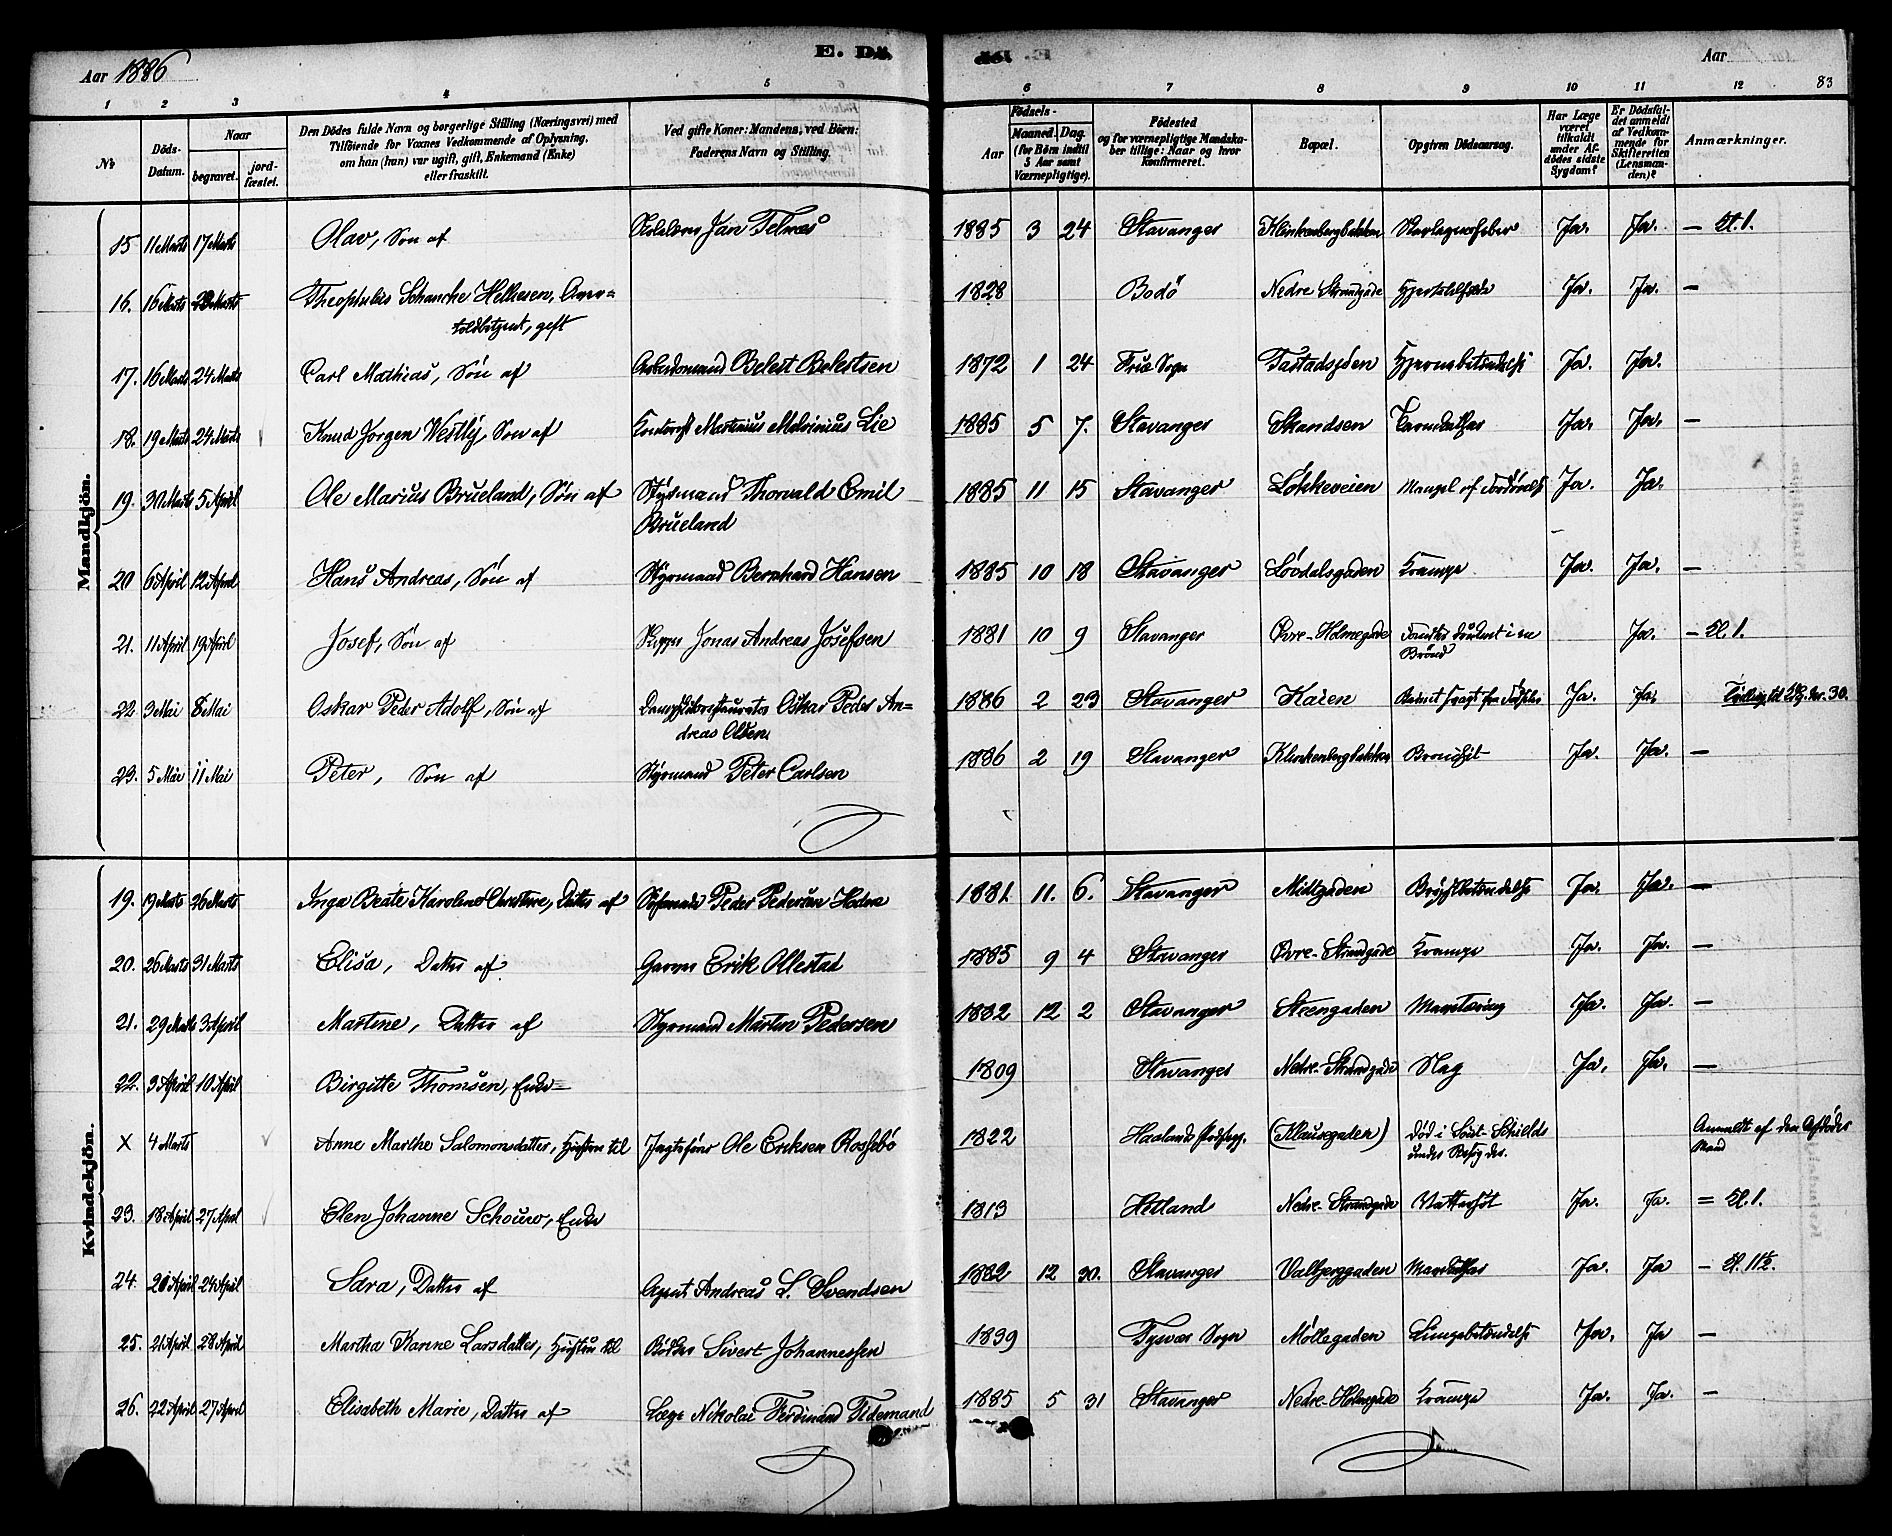 E. Dö.
Aar 1886
Aar
83
1 2 3 4 5 6 7 8 9 10 11 12
No
Döds-Datum.
Naar
begravet.
jord-fæstet.
Den Dödes fulde Navn og borgerlige Stilling (Næringsvei) med
Tilföiende for Voxnes Vedkommende af Oplysning,
om han (hun) var ugift, gift, Enkemand (Enke)
eller fraskilt.
Ved gifte Koner: Mandens, ved Börn:
Faderens Navn og Stilling.
Födsels-
Aar
Maaned. Dag.
(for Börn indtil
5 Aar samt
Værnepligtige).
Födested
og for værnepligtige Mandska-
ber tillige: Naar og hvor
konfirmeret.
Bopæl.
Opgiven Dödsaarsag.
Har Læge
været
tilkaldt
under Af-
dödes sidste
Sygdom?
Er Dödsfal-
det anmeldt
af Vedkom-
mende for
Skifteretten
(Lensman-
den)?
Anmærkninger.
Mandkjön.
15 11 Marts 17 Marts Olav, Søn af Jan Telnæs 1885 3 24 Stavanger Klinkenbergbakken Skarlagensfeber Ja. Ja. — Kl. 1.
16. 16 Marts Theophilus Schancke Helliesen, 1828 Bodø Nedre Strandgade Hjertelidelse Ja. Ja. —
toldbetjent, gift
17. 16 Marts 24 Marts Carl Mathias, Søn af Arbeidsmand Belest Belestsen 1872 1 24 Frue Sogn Tastadsyden Hjernebetændelse Ja. Ja.
18. 19 Marts 24 Marts Knud Jørgen Westly, Søn af Martinius Lie 1885 5 7. Stavanger Skandsen Tarmkathar Ja. Ja. —
19. 30 Marts 5 April Ole Marius Brueland, Søn af Styrmand Thorvald Emil 1885 11 15 Stavanger Løkkeveien Mangel af Fordøielse Ja. Ja.
Brueland
20 6 April 12 April Hans Andreas, Søn af Styrmand Bernhard Hansen 1885 10 18 Stavanger Løvdalsgaden Krampe Ja. Ja. —
21. 11 April 19 April Josef, Søn af Skipper Jonas Andreas Josefsen 1881 10 9 Stavanger Øvre-Holmegade druknet i en Ja. — Kl. 1.
Brønd
22 3 Mai 8 Mai Oskar Peder Adolf, Søn af Dampskibsrestauratør Oskar Peder An= 1886 2 23 Stavanger Kaien svagt fra Fødselen Ja. Ja. 30.
dreas Olsen
23. 5 Mai 11 Mai Peter, Søn af Styrmand Peter Carlsen 1886 2 19 Stavanger Klinkenbergbakken Bronchit Ja. Ja. —
Kvindekjön.
19. 19 Marts 26 Marts Inga Beate Karoline Christine, Datter af Peder Pedersen 1881. 11. 6. Stavanger Midtgaden Brystbetændelse Ja. Ja. —
20. 26 Marts 31 Marts Elisa, Datter af Garver Erik Ollestad 1885 9 4 Stavanger Øvre-Strandgade Krampe Ja. Ja. —
21. 29 Marts 3 April Martine, Datter af Styrmand Martin Pedersen 1882 12 2 Stavanger Strengaden Mavetæring Ja. Ja. —
22. 3 April 10 April Birgitte Thomsen, Enke 1809 Stavanger Nedre-Strandgade Slag Ja. Ja. —
X 4 Marts Anne Marthe Salomonsdatter, Hustru til Jagtsfører Ole Eriksen Rossebø 1822 Haalands (Klausegaden) Død i Anmeldt af den Afdødes
Mand
23. 18 April 27 April Elen Johanne Schouw, Enke 1813 Hetland Nedre-Strandgade Vattersot Ja. Ja. = Kl. 1.
24. 20 April 24 April Sara, Datter af Agent Andreas L. Svendsen 1882 12 30. Stavanger Valbjerggaden Mavekathar Ja. Ja — Kl. 11½.
25. 21 April 28 April Martha Karine Larsdatter, Hustru til Bødker Sivert Johannessen 1839 Tysvær Sogn Møllegaden Lungebetændelse Ja. Ja —
26. 22 April 27 April Elisabeth Marie, Datter af Læge Nikolai Ferdinand Tidemand 1885 5 31 Stavanger Nedre-Holmegade Krampe Ja. Ja. —